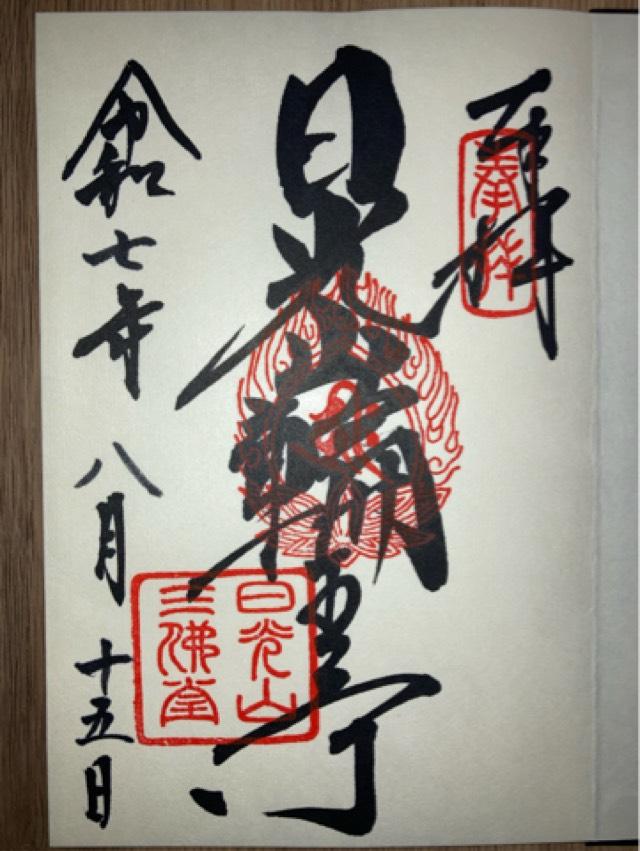 奉拝
日光山輪王寺
日光山
三佛堂
令和七年八月十五日